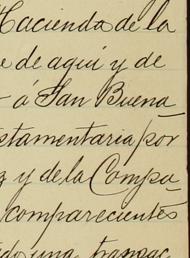 Hacienda de la
e de aquí y de
- á San Buena-
stamentaria por
z y de la Compa-
comparecientes
do una transac-